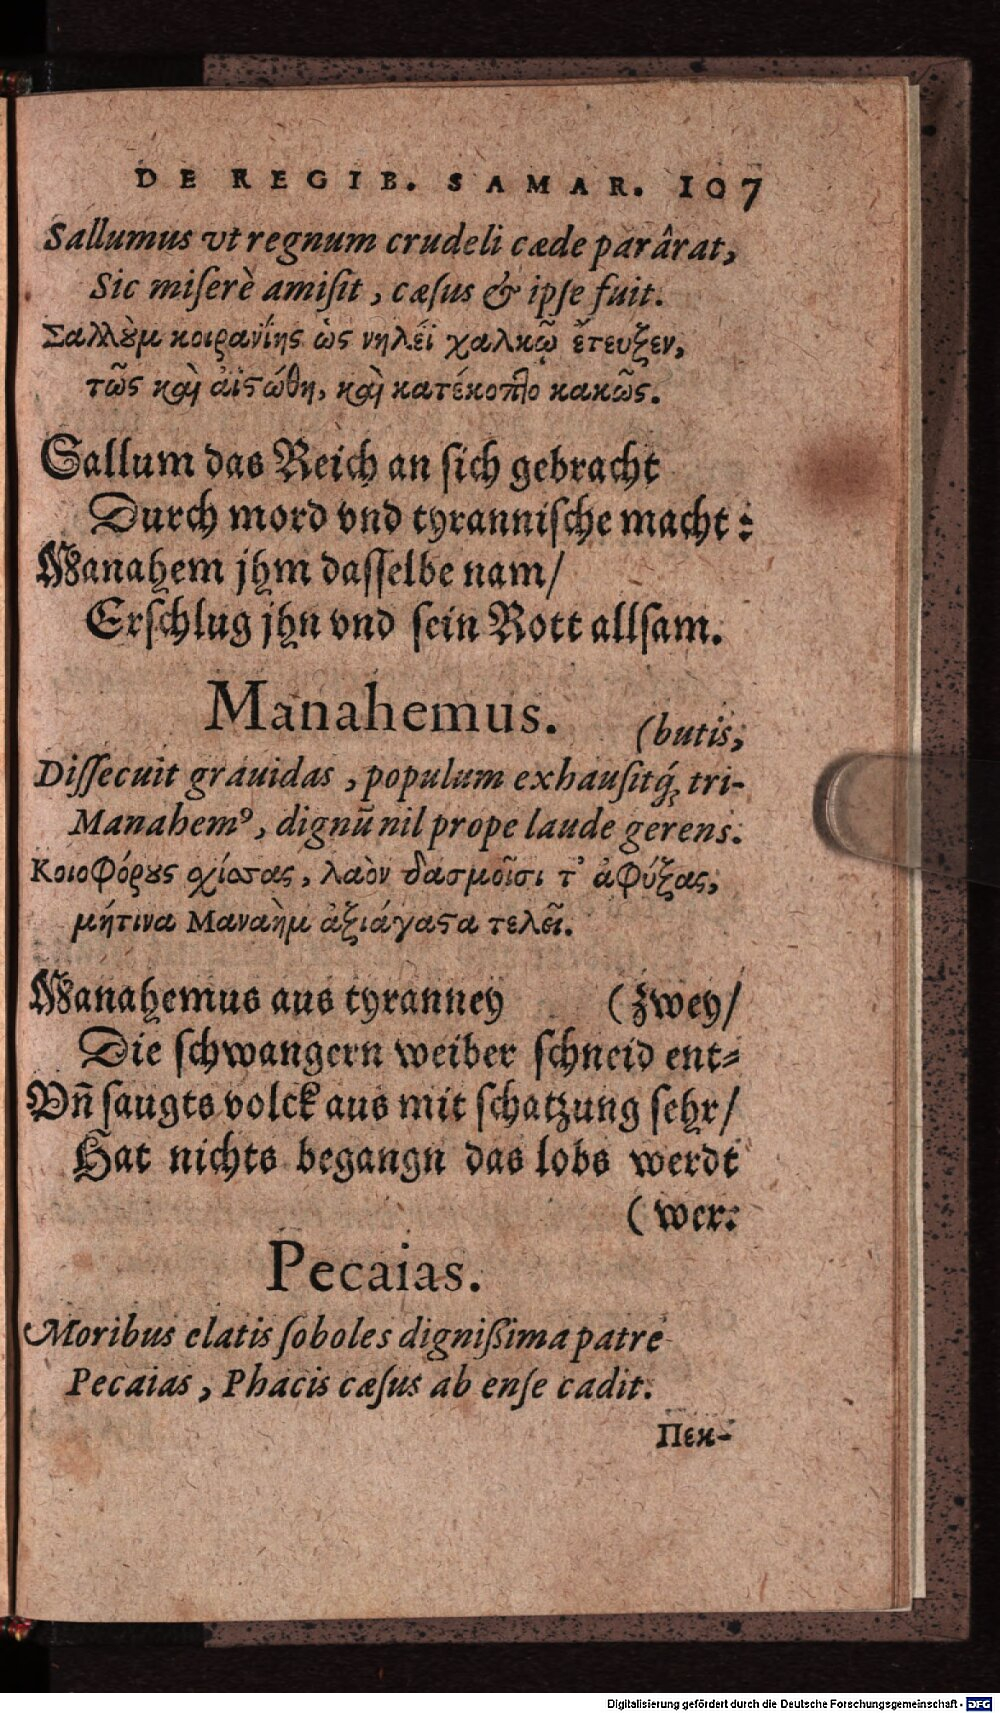 DE REGIB. SAMAR. 107
Sallumus vt regnum crudeli cæde parârat,
Sic miſerè amiſit, cæſus & ipſe fuit.
Σαλλȣ̀μ κοιρανΐης ὡς νηλέϊ χαλκῷ ἔτευξεν,
τῶς καὶ ἀϊςώθη, καὶ κατέκοπτο κακῶς.
Sallum das Reich an ſich gebracht
Durch mord vnd tyranniſche macht:
Manahem jhm daſſelbe nam/
Erſchlug jhn vnd ſein Rott allſam.
Manahemus.
(butis,
Diſſecuit grauidas, populum exhauſitq́ꝫ tri-
Manahemꝰ, dignũ nil prope laude gerens.
Κυοφόρȣς σχίσσας, λαὸν δασμοῖσι τ' ἀφύξας,
μήτινα Μαναὴμ ἀξιάγαςα τελεῖ.
Manahemus aus tyranney (zwey/
Die ſchwangern weiber ſchneid ent⸗
Vñ ſaugts volck aus mit ſchatzung ſehr/
Hat nichts begangn das lobs werdt
(wer.
Pecaias.
Moribus elatis ſoboles digniſsima patre
Pecaias, Phacis cæſus ab enſe cadit.
Πεκ-
Digitalisierung gefördert durch die Deutsche Forschungsgemeinschaft - DFG